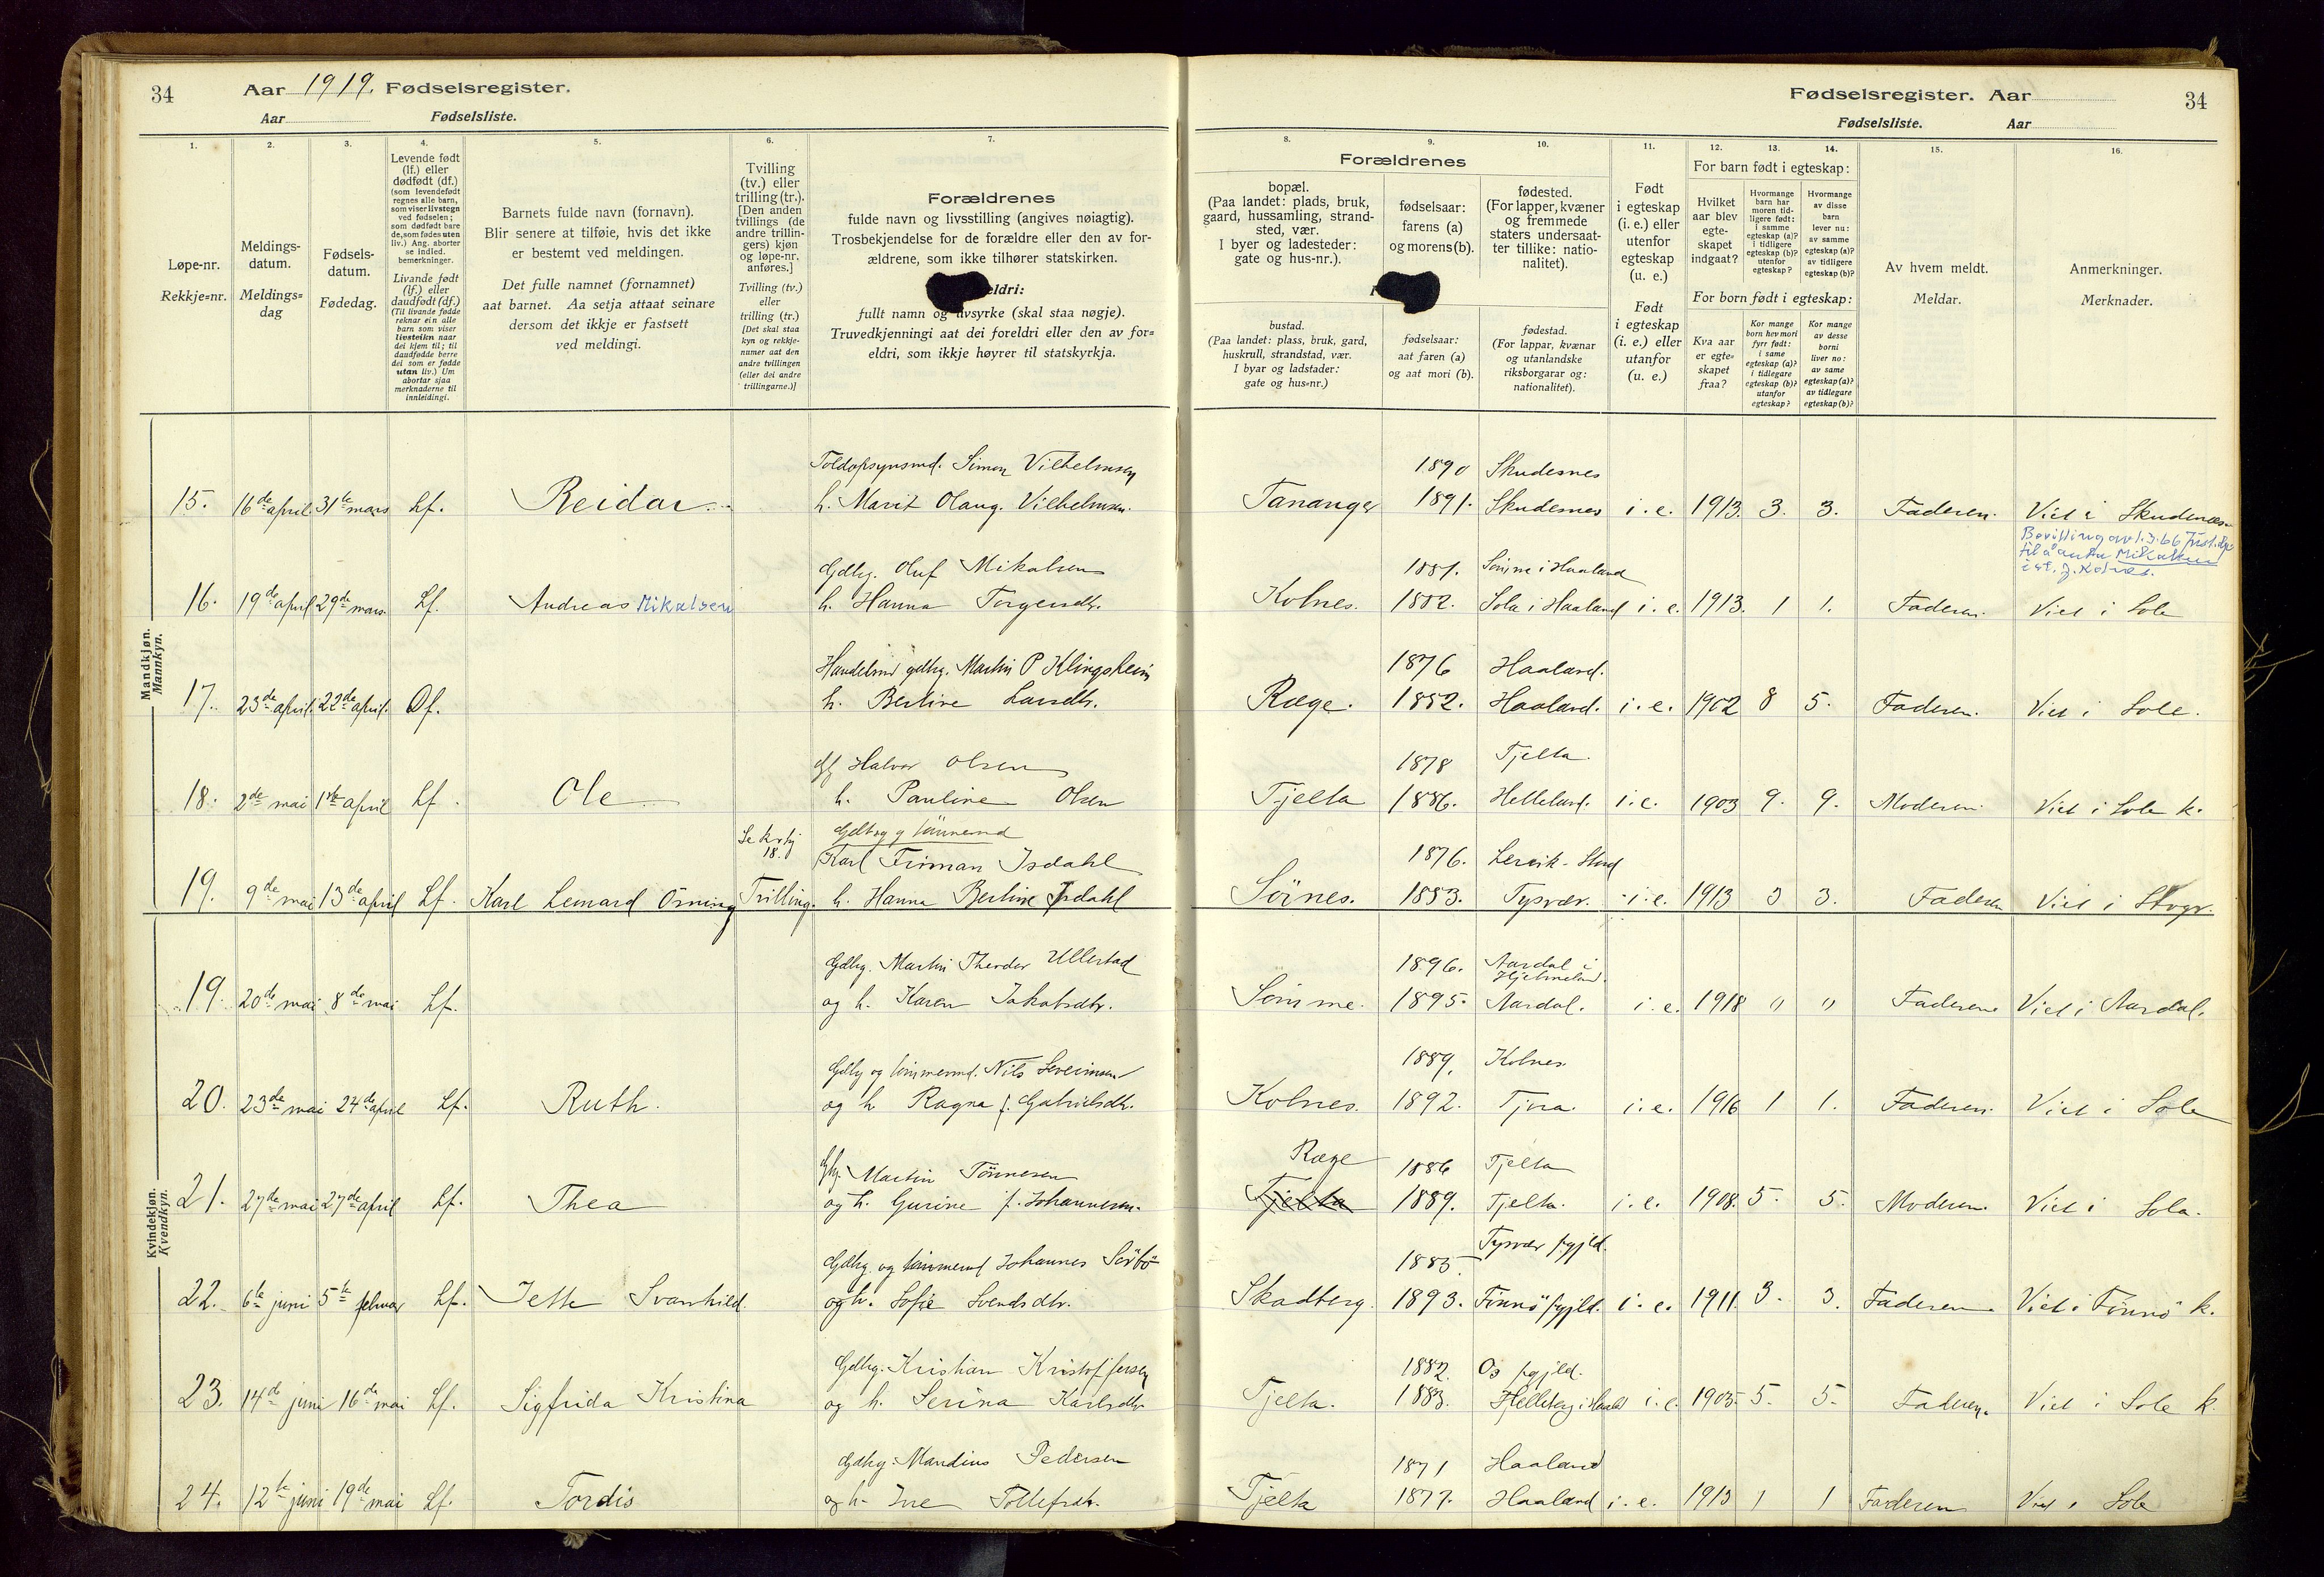 34
Aar 1919. Fødselsregister.
Aar Fødselsliste.
1.
2.
3.
4.
5.
6.
7.
Løpe-nr.
Rekkje=nr.
Meldings-
datum.
Meldings=
dag
Fødsels-
datum.
Fødedag.
Levende født
(lf.) eller
dødfødt (df.)
(som levendefødt
regnes alle barn,
som viser livstegn
ved fødselen;
som dødfødt bare
de, som fødes uten
liv.) Ang. aborter
se indled.
bemerkninger.
Livande født
(lf.) eller
daudfødt (df.)
(Til livande fødde
reknar ein alle
barn som viser
livsteikn naar
dei kjem til; til
daudfødde berre
dei som er fødde
utan liv.) Um
abortar sjaa
merknaderne til
innleidingi.
Barnets fulde navn (fornavn).
Blir senere at tilføie, hvis det ikke
er bestemt ved meldingen.
Det fulle namnet (fornamnet)
aat barnet. Aa setja attaat seinare
dersom det ikkje er fastsett
ved meldingi.
Tvilling
(tv.) eller
trilling (tr.).
[Den anden
tvillings (de
andre trillin-
gers) kjøn
og løpe-nr.
anføres.]
Tvilling (tv.)
eller
trilling (tr.)
[Det skal staa
kyn og rekkje-
numer aat den
andre tvillingen
(eller dei andre
trillingarne.)]
Forældrenes
fulde navn og livsstilling (angives nøiagtig).
Trosbekjendelse for de forældre eller den av for-
ældrene, som ikke tilhører statskirken.
eldri:
fullt namn og livsyrke (skal staa nøgje).
Truvedkjenningi aat dei foreldri eller den av for=
eldri, som ikkje høyrer til statskyrkja.
Mandkjøn.
Mannkyn.
Toldopsynsmd. Simon Vilhelmsen
15. 16de april. 31te mars Lf. Reidar. h. Marit Olaug. Vilhelmsen.
Gdbg. Oluf Mikalsen
16. 19de april 29de mars. Lf. Andreas Mikalsen h. Hanna Torgersdtr.
Handelsmd gdbg. Martin P Klingsheim
17. 23de april. 22de april. Df. h. Berline Larsdtr.
Halvor Olsen
18. 2de mai 1ste april Lf. Ole h. Pauline Olsen
18.
Gdbrg og tömmermd
Karl Friman Isdahl
19. 9de mai 13de april Lf. Karl Lenard Örning Trilling. h. Hanna Berline Isdahl
Kvindekjøn.
Kvendkyn.
Gdbg. Martin Theodor Ullestad
19. 20de mai 8de mai Lf. og h. Karen Jakobsdtr.
Gdbg og tömmermd. Nils Severinsen
20. 23de mai 24de april Lf. Ruth. og h. Ragna f. Gabrielsdtr.
Gbg. Martin Tönnesen
21. 27de mai 27de april Lf. Thea og h. Gurine f. Johannesen.
Gdbg. og tömmermd Johannes Sörbö
22. 6te juni 5te februar Lf. Jette Svanhild og h. Sofie Svendsdtr.
Gdbg. Kristian Kristoffersen
23. 14de juni 16de mai Lf. Sigfrida Kristina og h. Serina Karlsdtr
Gdbg. Mandius Pedersen
24. 12te juni 19de mai Lf. Tordis og h. Ine Tollefsdtr.
Fødselsregister. Aar 34
Fødselsliste. Aar
8.
9.
10.
11.
12.
13.
14.
15.
16.
Forældrenes
bopæl.
(Paa landet: plads, bruk,
gaard, hussamling, strand-
sted, vær.
I byer og ladesteder:
gate og hus-nr.).
fødselsaar:
farens (a)
og morens (b).
fødested.
(For lapper, kvæner
og fremmede
staters undersaat-
ter tillike: natio-
nalitet).
bustad.
(Paa landet: plass, bruk, gard,
huskrull, strandstad, vær.
I byar og ladstader:
gate og hus=nr.)
fødselsaar:
aat faren (a)
og aat mori (b).
fødestad.
(For lappar, kvænar
og utanlandske
riksborgarar og:
nationalitet).
Født
i egteskap
(i. e.) eller
utenfor
egteskap
(u. e.)
Født
i egteskap
(i. e.) eller
utanfor
(u. e.)
For barn født i egteskap:
Hvilket
aar blev
egte-
skapet
indgaat?
Hvormange
barn har
moren tid-
ligere født:
i samme
egteskap (a)?
i tidligere
egteskap (b)?
utenfor
egteskap?
Hvormange
av disse
barn
lever nu:
av samme
egteskap (a)?
av tidligere
egteskap (b)?
For born født i egteskap:
Kva aar
er egte=
skapet
fraa?
Kor mange
born hev mori
fyrr født:
i same
egteskap (a)?
i tidlegare
egteskap (b)?
utanfor
egteskap?
Kor mange
av desse
borni
liver no:
av same
egteskap (a)?
av tidlegare
egteskap (b)?
Av hvem meldt.
Meldar.
Anmerkninger.
Merknader.
1890 Skudesnes
Tananger 1891. Skudesnes i. e. 1913. 3. 3. Faderen. Viet i Skudenes
Bevilling av 1.3.66
til å anta Mikalsen
1881. Sömme i Haaland
Kolnes. 1882. Sola i Haaland i. e. 1913. 1 1. Faderen. Viet i Sole
1876 Haaland.
Ræge. 1882. Haaland. i. e. 1902 8 5. Faderen. Viet i Sole.
1878 Tjelta.
Tjelta 1886. Helleland. i. e. 1903 9. 9. Moderen Viet i Sole k.
1876. Lervik - Stord
Sörnes. 1883. Tysvær. i. e. 1913 3 3. Faderen Viet i
1896. Aardal i
Hjelmeland.
Sömme. 1895. Aardal. i. e. 1918 " " Faderen Viet i Aardal.
1889. Kolnes.
Kolnes. 1892. Tjora. i. e. 1916 1 1. Faderen. Viet i Sole
Ræge 1886 Tjelta
Tjelta 1889. Tjelta. i. e. 1908. 5. 5. Moderen. Viet i Sola.
1885. Tysvær pgjld.
Skadberg. 1893. Finnö pgjld. i. e. 1911. 3. 3. Faderen. Viet i Finnö k.
1882. Os pgjld.
Tjelta. 1883. i. e. 1905. 5. 5. Faderen. Viet i Sole k.
1871 Haaland
Tjelta 1877. Haaland i. e. 1913 1 1 Faderen Viet i Sole